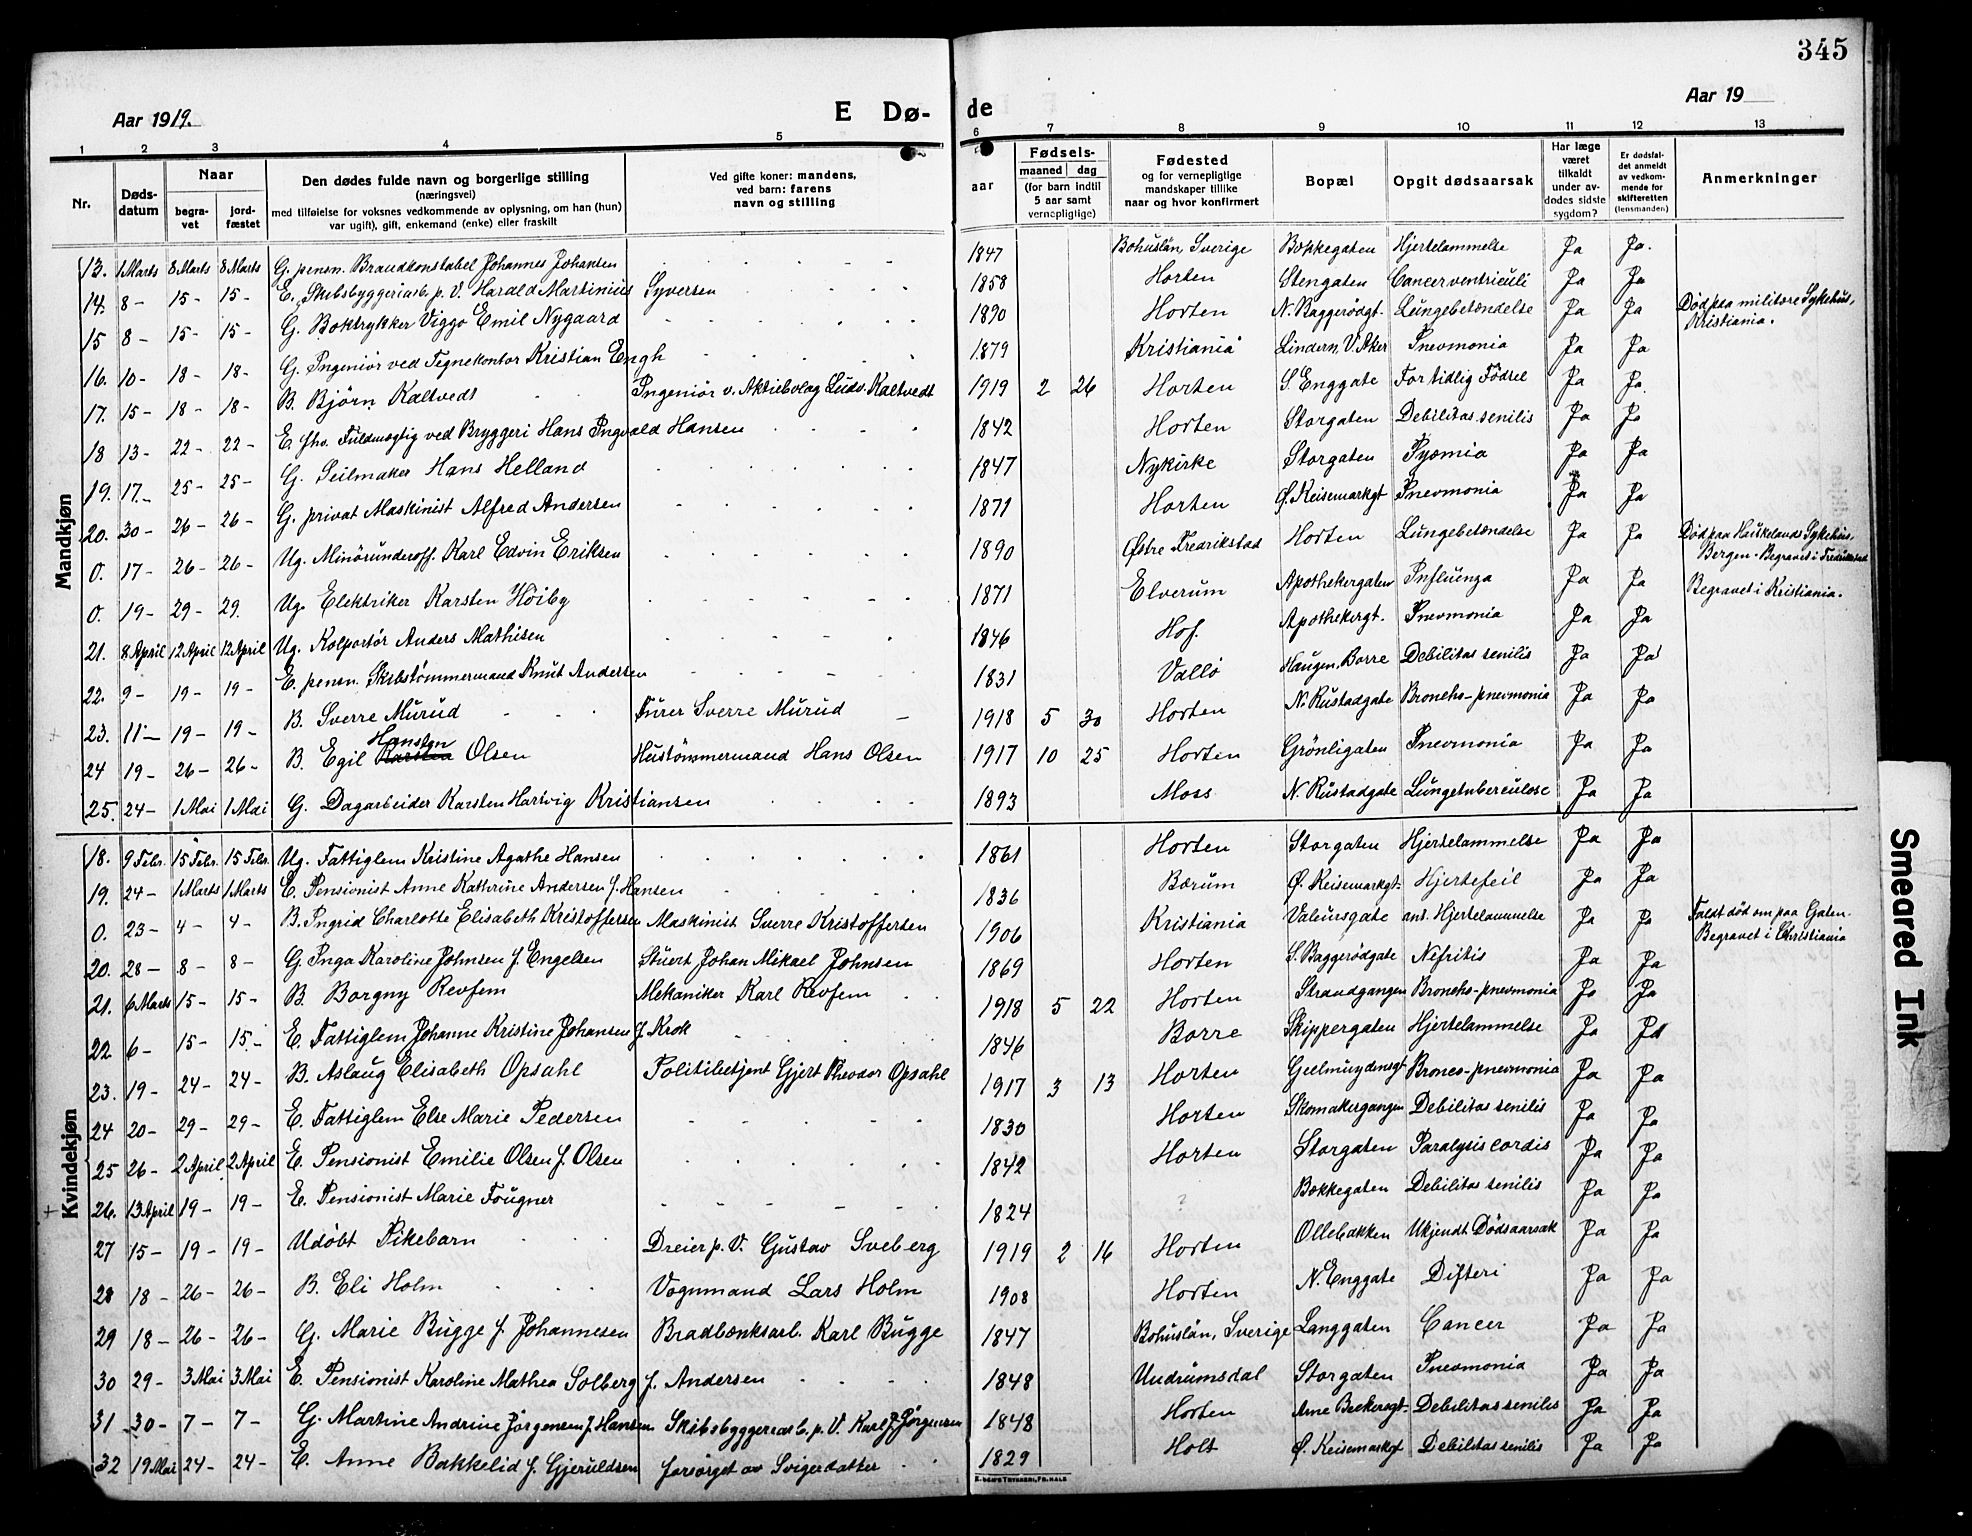 345
Aar 1919.
E Dø- de
Aar 19
1 2 3 4 5 6 7 8 9 10 11 12 13
Nr.
Døds-
datum
Naar
begra-
vet
jord-
fæstet
Den dødes fulde navn og borgerlige stilling
(næringsvei)
med tilføielse for voksnes vedkommende av oplysning, om han (hun)
var ugift), gift, enkemand (enke) eller fraskilt
Ved gifte koner: mandens,
ved barn: farens
navn og stilling
aar
Fødsels-
maaned dag
(for barn indtil
5 aar samt
vernepligtige)
Fødested
og for vernepligtige
mandskaper tillike
naar og hvor konfirmert
Bopæl
Opgit dødsaarsak
Har læge
været
tilkaldt
under av-
dødes sidste
sygdom?
Er dødsfal-
det anmeldt
av vedkom-
mende for
skifteretten
(lensmanden)
Anmerkninger
Mandkjøn
13. 1 Marts 8 Marts 8 Marts G. pensn. Brandkonstabel Johannes Johansen 1847 Bohuslän, Sverige Bækkegaten Hjertelammelse Ja Ja.
14. 8 - 15 - 15 - E. Skibsbyggeriarb. p. V. Harald Martinius Syversen 1858 Horten Stengaten Cancer ventriculi Ja Ja
15 8 - 15 - 15 - G. Boktrykker Viggo Emil Nygaard 1890 Horten N. Baggerødgt. Lungebetændelse Ja Ja Død paa militære Sykehus, Kristiania.
16. 10 - 18 - 18 - G. Ingeniør ved Tegnekontor Kristian Engh 1879 Kristiania Lindern, V. Aker Pnevmonia Ja Ja
17. 15 - 18 - 18 - B. Bjørn Kaltvedt Ingeniør v. Aktiebolag Ludv. Kaltvedt 1919 2 26 Horten S. Enggate For tidlig Fødsel Ja Ja.
18 13 - 22 - 22 - E. fhv. Fuldmægtig ved Bryggeri Hans Ingvald Hansen 1842 Horten Storgaten Debilitas senilis Ja Ja
19. 17 - 25 - 25 - G. Seilmaker Hans Helland 1847 Nykirke Storgaten Pyæmia Ja Ja
20. 30 - 26 - 26 - G. privat Maskinist Alfred Andersen 1871 Horten Ø. Keisemarkgt Pnevmonia Ja Ja
0. 17 - 26 - 26 - Ug. Minørunderoff. Karl Edvin Eriksen 1890 Østre Fredrikstad Horten Lungebetændelse Ja Ja Død paa Haukelands Sykehus, Bergen. Begravet i Fredrikstad
0. 19 - 29 - 29. Ug. Elektriker Karsten Höiby 1871 Elverum Apothekergaten Influenza Ja Ja Begravet i Kristiania.
21. 8 April 12 April 12 April Ug. Kolportör Anders Mathisen 1846 Hof. Apothekergt. Pnevmonia Ja Ja
22. 9 - 19 - 19 - E. pensn. Skibstømmermand Knut Andersen 1831 Vallö Haugen, Borre Debilitas senilis Ja Ja
23. 11 - 19 - 19 - B. Sverre Murud Furer Sverre Murud 1918 5 30 Horten N. Rustadgate Broncho-pnevmonia Ja Ja
24 19 - 26 - 26 - B. Egil Hansten Olsen Hustømmermand Hans Olsen 1917 10 25 Horten Grönligaten Pnevmonia Ja Ja
25. 24 - 1 Mai 1 Mai G. Dagarbeider Karsten Hartvig Kristiansen 1893 Moss N. Rustadgate Lungetuberculose Ja Ja
Kvindekjøn
18. 9 Febr. 15 Febr. 15 Febr. Ug. Fattiglem Kristine Agathe Hansen 1861 Horten Storgaten Hjertelammelse Ja Ja
19. 24 - 1 Marts 1 Marts E. Pensionist Anne Kathrine Andersen f. Hansen 1836 Bærum Ø. Keisemarkgt. Hjertefeil Ja Ja
0. 23 - 4 - 4 - B. Ingrid Charlotte Elisabeth Kristoffersen Maskinist Sverre Kristoffersen 1906 Kristiania Valeursgate ant. Hjertelammelse Ja Ja Faldt død om paa Gaten. Begravet i Christiania
20. 28 - 8 - 8 - G. Inga Karoline Johnsen f. Engelsen Stuert Johan Mikael Johnsen 1869 Horten S. Baggerødgate Nefritis Ja Ja
21. 6 Marts 15 - 15 - B. Borgny Revfem Mekaniker Karl Revfem 1918 5 22 Horten Strandgangen Broncho-pnevmonia Ja Ja
22 6 - 15 - 15. - E. Fattiglem Johanne Kristine Johansen f. Krok 1846 Borre Skippergaten Hjertelammelse Ja Ja
23. 19 - 24 - 24 - B. Aslaug Elisabeth Opsahl Politibetjent Gjert Theodor Opsahl 1917 3 13 Horten Geelmuydensgt Bronco-pnevmonia Ja Ja
24 20 - 29 - 29 - E. Fattiglem Else Marie Pedersen 1830 Horten Skomakergangen Debilitas senilis Ja Ja
25 26 - 2 April 2 April E. Pensionist Emilie Olsen f. Olsen 1842 Horten Storgaten Paralysis cordis Ja Ja
26. 13 April 19 - 19 - E. Pensionist Marie Fougner 1824 ? Bækkegaten Debilitas senilis Ja Ja
27 15 - 19 - 19 - Udøbt Pikebarn Dreier p. V. Gustav Sveberg 1919 2 16 Horten Ollebakken Ukjendt Dødsaarsak Ja Ja
28 18 - 26 - 26 - B. Eli Holm Vognmand Lars Holm 1908 Horten N. Enggate Difteri Ja Ja
29 18 - 26 - 26 - G. Marie Bugge f. Johannesen Bradbænksarb. Karl Bugge 1847 Bohuslän, Sverige Langgaten Cancer Ja Ja
30 29 - 3 Mai 3 Mai E. Pensionist Karoline Mathea Solberg f. Andersen 1848 Undrumsdal Storgaten Pnevmonia Ja Ja
31 30 - 7 - 7 - G. Martine Andrine Jørgensen f. Hansen Skibsbyggerarb. p. V. Karl J. Jørgensen 1848 Horten Arne Beekersgt. Debilitas senilis Ja Ja
32 19 Mai 24 - 24 - E. Anne Bakkelid f. Gjeruldsen forsørget av Svigerdatter 1829 Holt Ø. Keisemarkgt Debilitas senilis Ja Ja
Smeared Ink